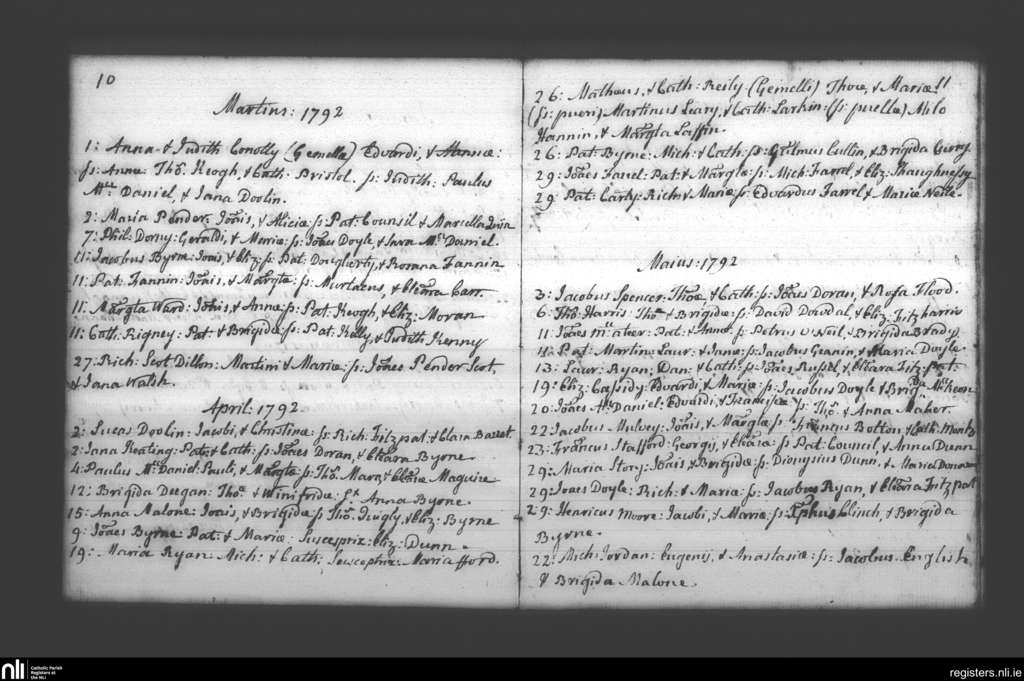 10
Martius: 1792
1: Anna & Judith Conolly (Gemellæ) Edvardi, & Annæ:
ſs: Annæ Thõ: Keogh, & Cath: Bristol. ſs: Judith: Paulus
Mc Daniel, & Jana Doolin.
2: Maria Pender: Joãis, & Aliciæ: ſs: Pat: Counsil & Marcella
7: Phil: Dorny: Geraldi, & Mariæ: ſs: Joães Doyle, & Sara Mc Daniel.
11: Jacobus Byrne: Joais, & Eliz: ſs: Pat: Dougherty, & Rosana Fannin
11: Pat: Fannin: Joãis, & Margtæ: ſs: Murtaeus, & Clara Carr.
11: Margta Ward: Johis, & Annæ ſs: Pat: Keogh, & Eliz: Moran
11: Cath: Rigney: Pat: & Brigidæ: ſs: Pat: Kelly, & Judith Kenny
27: Rich: Scot Dillon: Martini & Mariæ: ſs: Joães Pender Scot,
& Jana Walsh.
April: 1792
2: Lucas Doolin: Jacobi, & Christinæ: ſs: Rich: Fitzpat: & Clara Basset.
2: Jana Keating: Pat: & Cath: ſs: Joães Doran, & Clara Byrne
4: Paulus Mc Daniel: Pauli, & Margtæ ſs: Thõ: Mara, & Clara Maguire
12: Brigida Deegan: Thõ: & Winifridæ: Anna Byrne.
15: Anna Malone: Joais, & Brigidæ ſs: Thõ: & Eliz: Byrne
9: Joães Byrne: Pat: & Mariæ: Susceptrix: Eliz: Dunn.
19: Maria Ryan: Mich: & Cath: Susceptrix: Maria fford.
26: Matheus, & Cath: Reily (Gemelli) Thoæ, & Mariæ!!
(ſs: pueri) Martinus Leary, & Cath: Larkin: (ſs: puellæ) Milo
Hannin, & Margta Laffin.
26: Pat: Byrne: Mich: & Cath: ſs: Gulmus Cullin, & Brigida Curry.
29: Joães Farrel: Pat: & Margtæ: ſs: Mich: Farrel, & Eliz: Shaughnessy
29: Pat: Carty: Rich: & Mariæ: ſs: Edvardus Farrel, & Maria Neile.
Maius: 1792
3: Jacobus Spencer: Thoæ, & Cath: ſs: Joães Doran, & Rosa Flood.
6: Thõ: Harris: Thõ: & Brigidæ: ſs: David Dowdal, & Eliz: Fitzharris
11: Joães Maher: Pat: & Annæ: ſs: Petrus O Neil, & Brigida Brady
11: Pat: Martin: Laur: & Janæ: ſs: Jacobus Geanin, & Maria Doyle.
13: Laur: Ryan: Dan: & Cath: ſs: Joães Russel, & Clara Fitzpat:
19: Eliz: Cassidy: Edvardi, & Mariæ: ſs: Jacobus Doyle & Brigda McKeon.
20: Joães Mc Daniel: Edvardi, & Franciscæ: ſs: Thõ: & Anna Maher.
22: Jacobus Mulvey: Joãis, & Margtæ ſs: Francus Botton, & Cath:
23: Francus Stafford: Georgij, & Claræ: ſs: Pat: Council, & Anna Dunn
29: Maria Story: Joãis & Brigidæ: ſs: Dionysius Dunn, & Maria
29: Joaes Doyle: Rich: & Mariæ: ſs: Jacobus Ryan, & Clara Fitzpat
29: Henricus Moore: Jacobi, & Mariæ: ſs: Jphus Clinch, & Brigida
Byrne.
22: Mich: Jordan: Eugenij, & Anastasiæ: ſs: Jacobus English
& Brigida Malone.
nli
Catholic Parish
Registers at
the NLI
registers.nli.ie